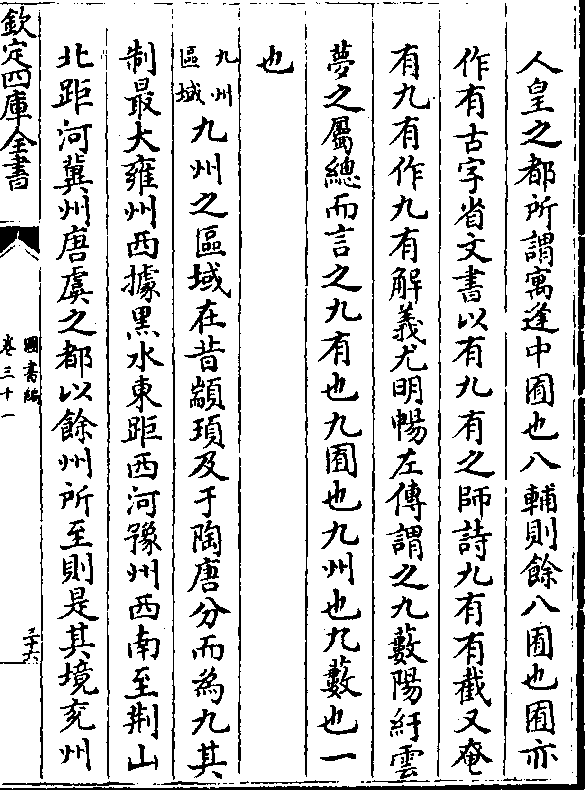 人皇之都所謂寓逢中囿也八輔則餘八囿也囿亦
作有古字省文書以有九有之師詩九有有截又奄
有九有作九有解義尤明暢左傳謂之九藪陽紆雲
夢之屬總而言之九有也九囿也九州也九藪也一
也
九州
區域
九州之區域在昔顓頊及于陶唐分而為九其
制最大雍州西據黑水東距西河豫州西南至荆山
北距河冀州唐虞之都以餘州所至則是其境兖州
欽定四庫全書
圖書編
卷三十一
三十六